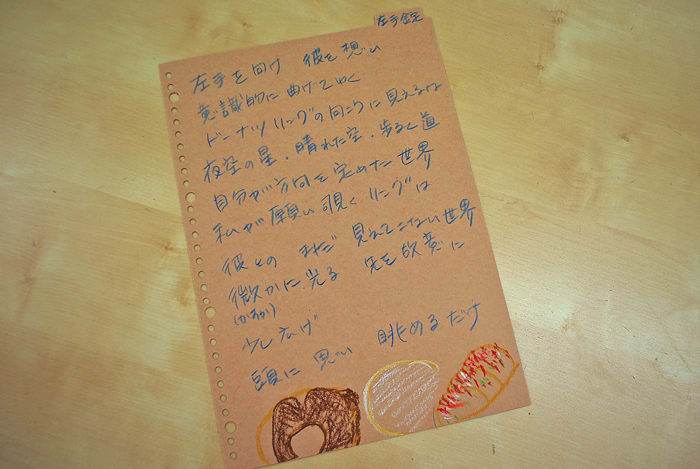 左手を向け 彼を想い
意識的に曲げてゆく
ドーナツリングの向こうに見えるは
夜空の星、晴れた空、歩るく道
自分が方向を定めた世界
私が願い覗くリングは
彼との まだ 見えてこない世界
微かに光る 先を故意に
(かすか)
少し広げ
頭に思い 眺めるだけ